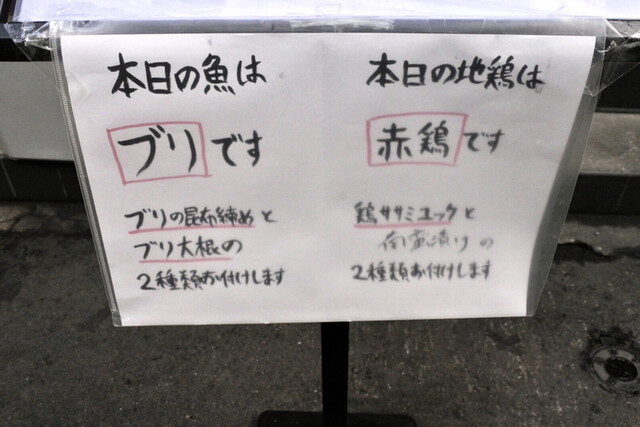 本日の魚は
ブリです
ブリの昆布締めと
ブリ大根の
2種類お付けします
本日の地鶏は
赤鶏です
鶏ササミユックと
南蛮漬けの
2種類お付けします